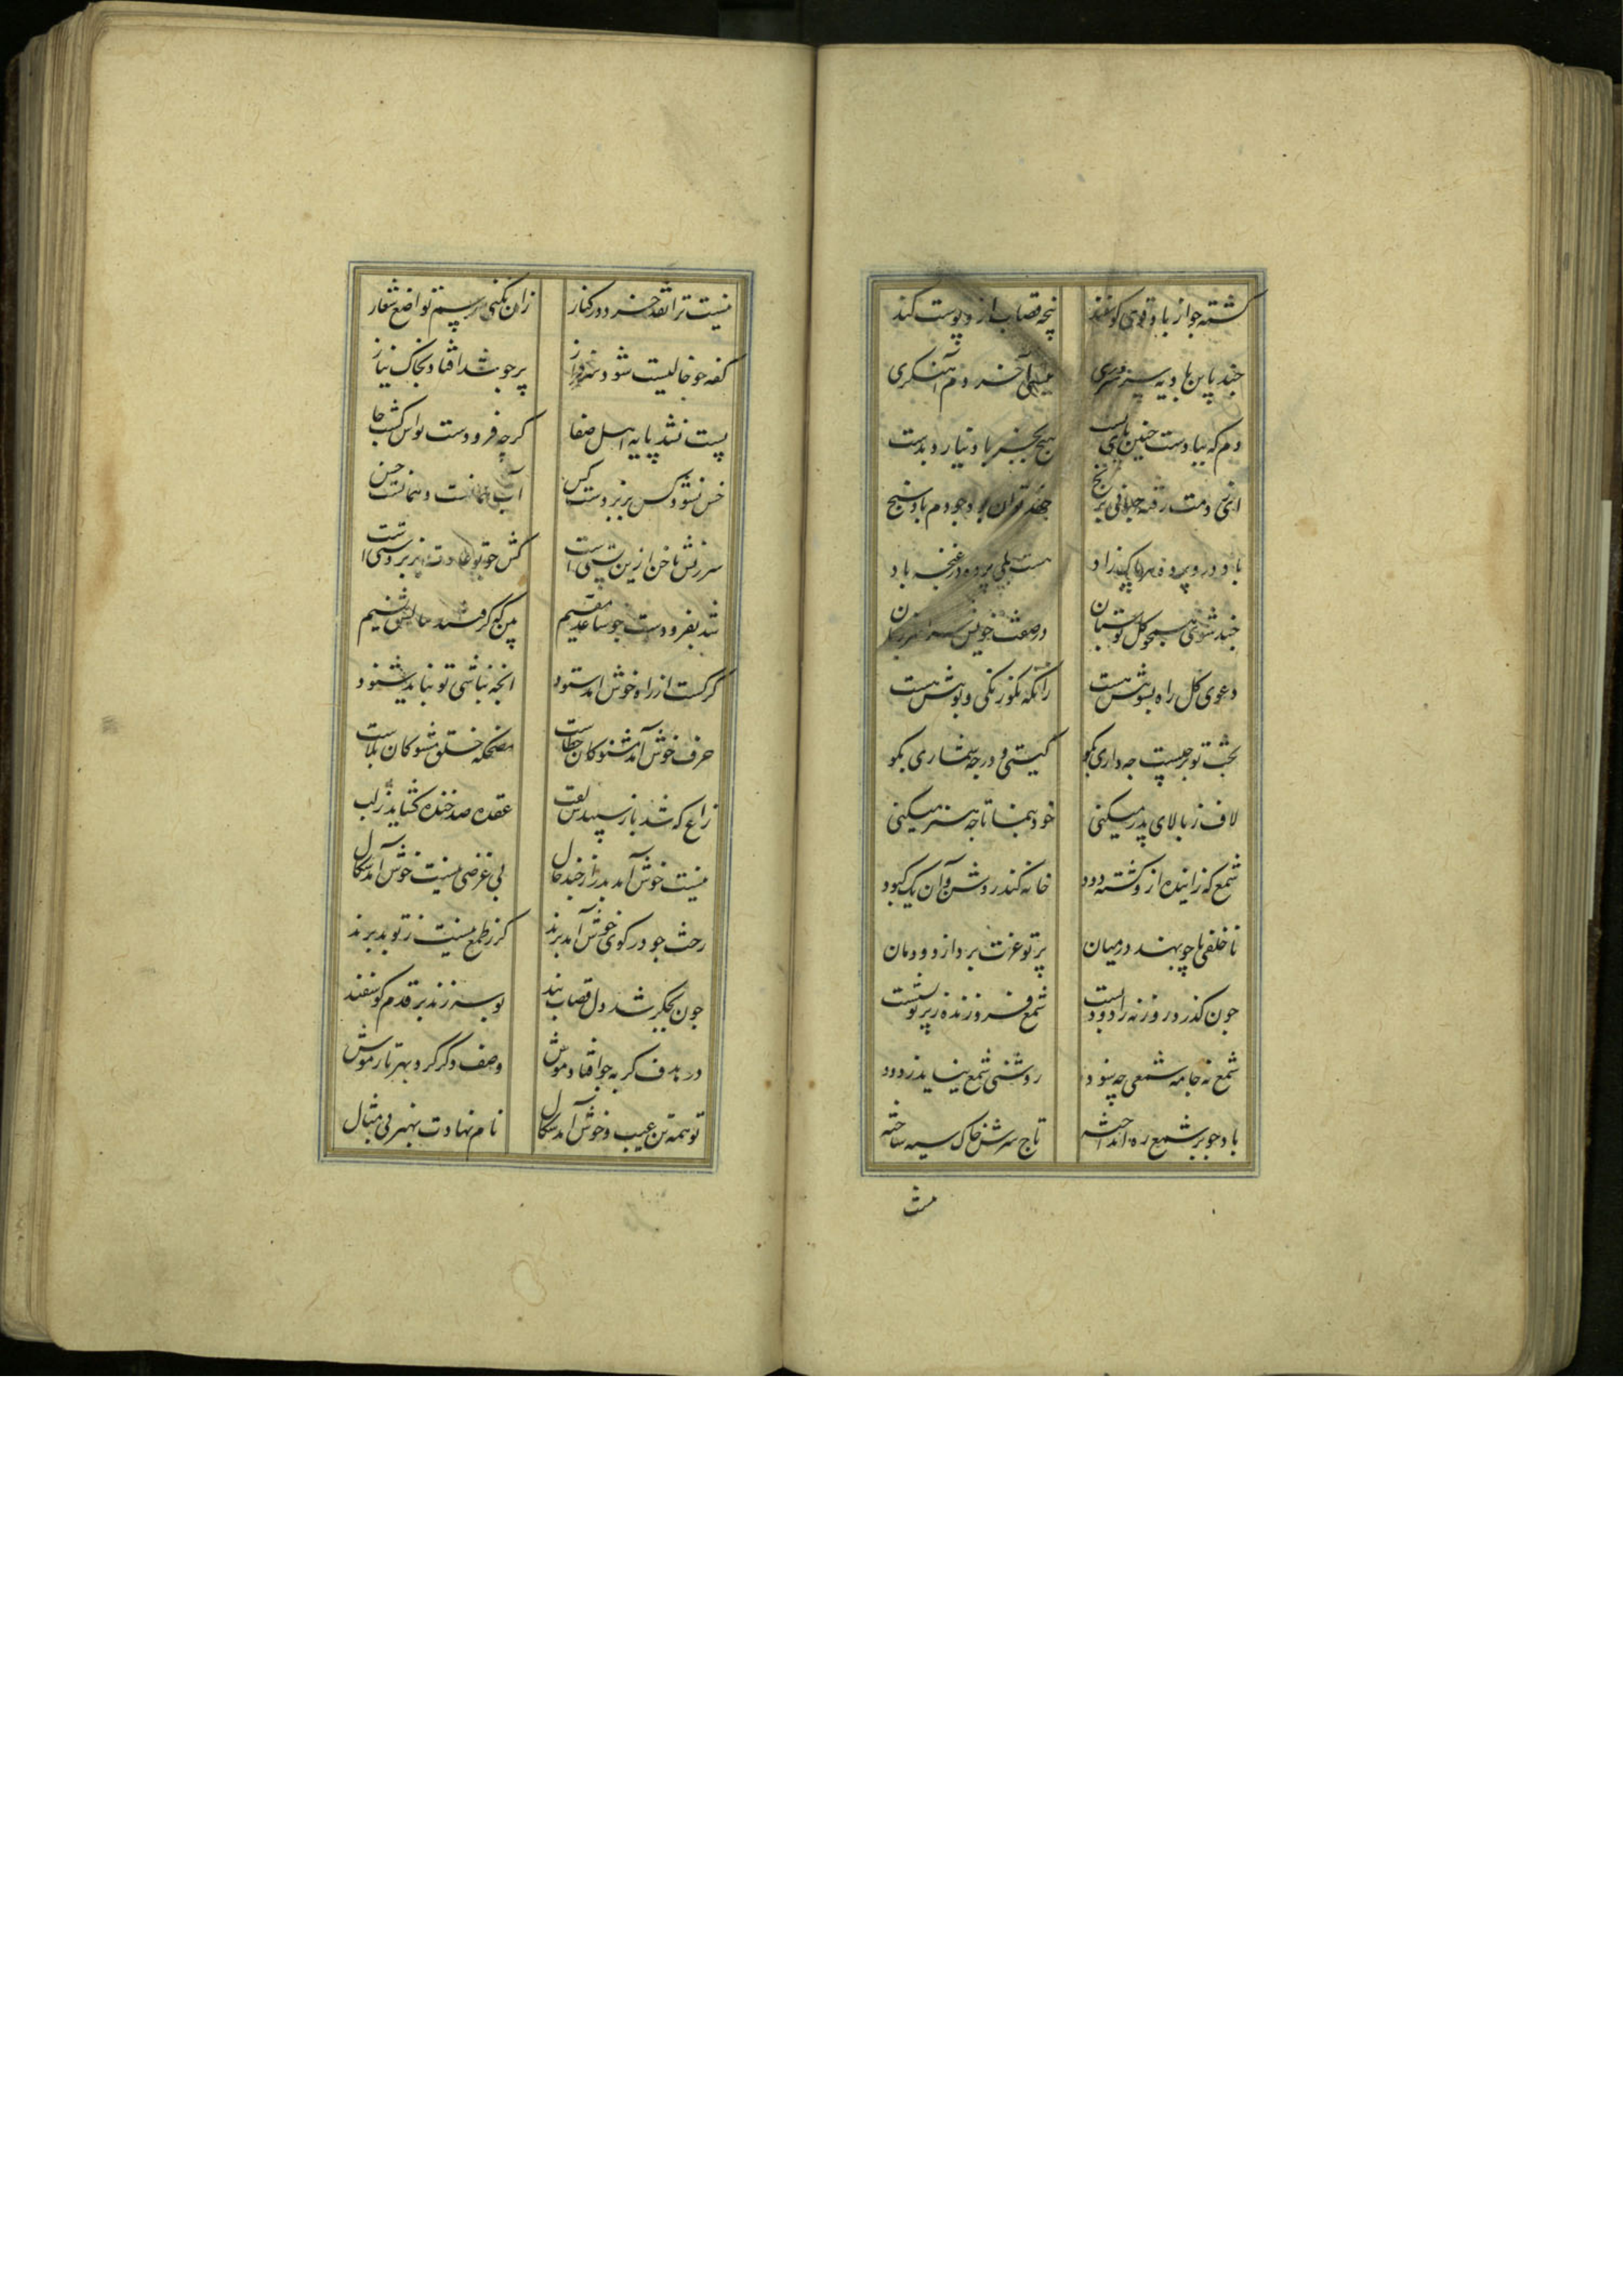 کشته جو از باد قوی کوسفند پنجه قصاب ازو پوست کند
جند پاین باد به سینه وری نیستی آخر دم آهنکری
دم که بیادست جنین پای بست هیچ بجز باد نیارد بدست
باد درو پرده هر پاک زاد هست بلی پرده در غنجه باد
جند شوی همجو کل بوستان در صفت خویش سراسر زبان
دعوی کل راه ببویش هست زانکه نکو رنکی و بویش هست
بحث تو بر جیست جه داری بکو کیستی و در جه شماری بکو
لاف ز بالای پدر میکنی خود بنما تا جه هنر میکنی
شمع که زاینده ازو کشته دود خانه کند روشن و آن یک کبود
ناخلفی پا چو نهد در میان پرتو عزت برد از دودمان
جون کذرد روزنه را دود پست شمع فروزنده ز پرتو نشست
شمع نه جامه شمعی جه سود روشنی شمع نیاید ز دود
باد جو بر شمع ره انداخته تاج سرش خاک سیه ساخته
نیست ترا نقد خرد در کنار زان نکنی رسم تواضع شعار
کفه جو خالیست شود سرفراز پر جو شد افتاد بخاک نیاز
پست نشد پایه اهل صفا کرچه فرودست تو اش کشت جا
خس نشود کس بزبردست کس آب همانست و همانست خس
سرزنش ناخن ازین پستی است کش جو تو عادت بزبردستی است
شد بفرودست جو ساعد مقیم
کر کست از راه خوش امد ستود انجه نباشی تو نباید شنود
حرف خوش آمد مشنو کان خطاست مضحکه خلق مشو کان بلاست
زاغ که شد باز سپیدش لقب عقده صد خنده کشاید ز لب
نیست خوش آمد بدر از خبد حال بی غرضی نیست خوش آمد سکال
رخت جو در کوی خوش آمد برند کر ز طمع نیست ز تو بد برند
جون بجکر شد دل قصاب بند بوسه زند بر قدم کوسفند
در بدف کربه جو افتاد موش وصف دکر کرد بهر تار موش
تو همه تن عیب و خوش آمد سکال نام نهادت بهنر بی مثال